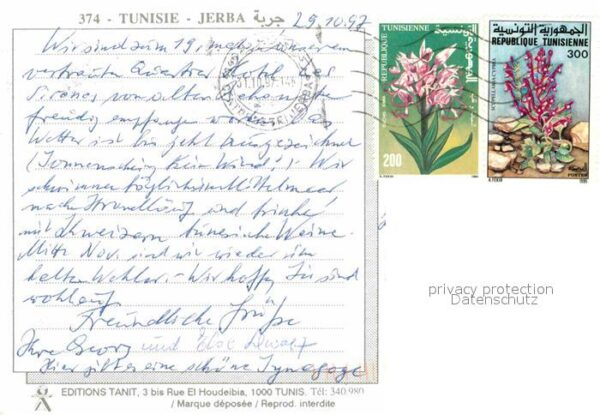 374 - TUNISIE - JERBA جربة
29.10.97
Wir sind zum 19. mal in unserem
vertrauten Quartier Hotel Les
Sirènes von alten Bekannten
freudig empfangen worden. Das
Wetter ist bis jetzt ausgezeichnet
(Sonnenschein, kein Wind!). Wir
schwimmen täglich im Mittelmeer
nach und trinken
mit Schweizern tunesische Weine.
Mitte Nov. sind wir wieder im
kalten Wetzlar. Wir hoffen, Sie sind
wohlauf.
Freundliche Grüße
Ihre Georg und
Hier gibt es eine schöne Synagoge
EDITIONS TANIT, 3 bis Rue El Houdeibia, 1000 TUNIS. Tél: 340.980
/ Marque déposée / Reprod. interdite
REPUBLIQUE TUNISIENNE
200
الجمهورية التونسية
REPUBLIQUE TUNISIENNE
300
privacy protection
Datenschutz